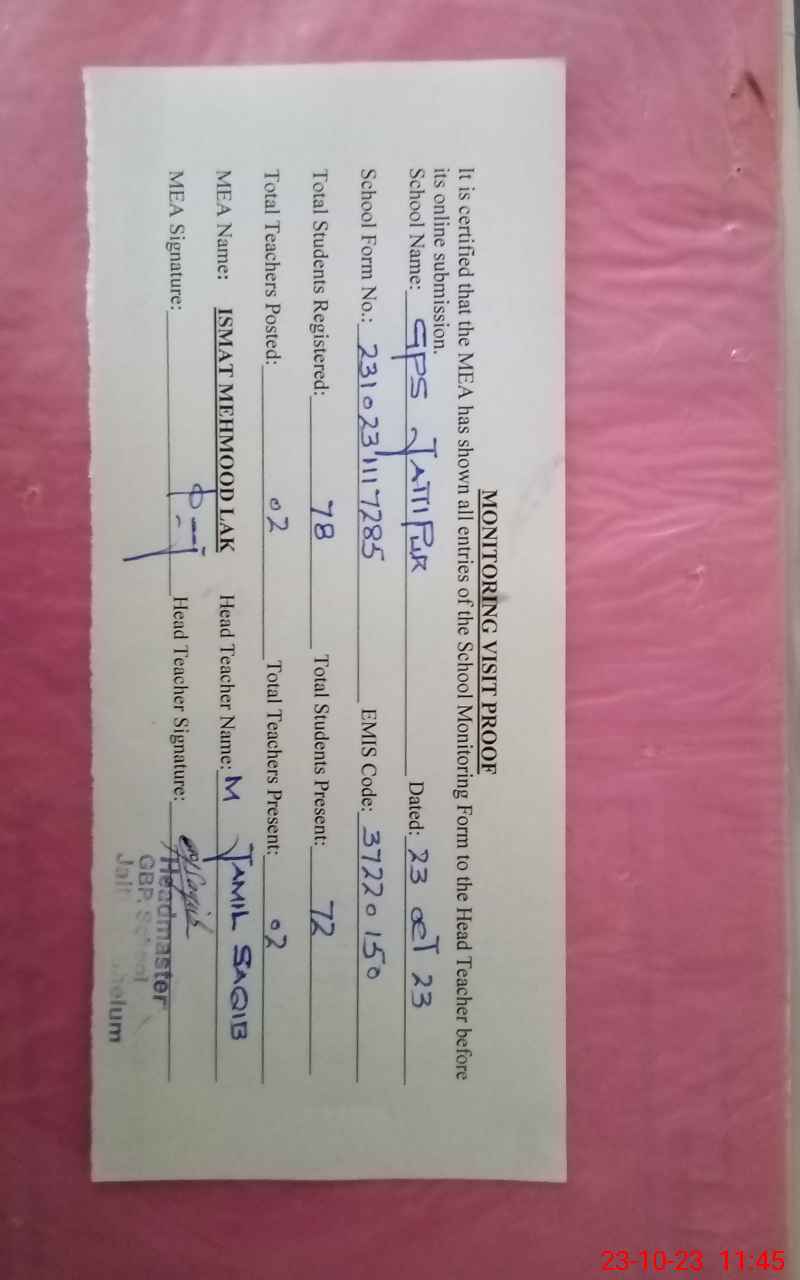 MONITORING VISIT PROOF
It is certified that the MEA has shown all entries of the School Monitoring Form to the Head Teacher before
its online submission.
School Name: GPS JATTIPUR Dated: 23 OCT 23
School Form No.: 2310231117285 EMIS Code: 37220150
Total Students Registered: 78 Total Students Present: 72
Total Teachers Posted: 02 Total Teachers Present: 02
MEA Name: ISMAT MEHMOOD LAK Head Teacher Name: M JAMIL SAQIB
MEA Signature: Head Teacher Signature:
Headmaster
23-10-23 11:45